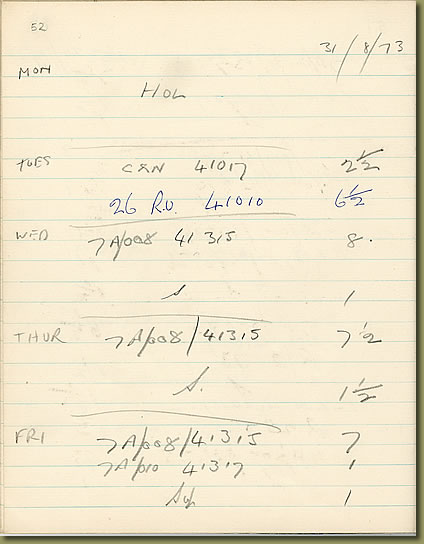 52
31/8/73
MON
HOL
TUES C&N 41017 2½
26 R.U. 41010 6½
WED 7A/008 41315 8.
S 1
THUR 7A/008/41315 7½
S. 1½
FRI 7A/008/41315 7
7A/010 41317 1
1